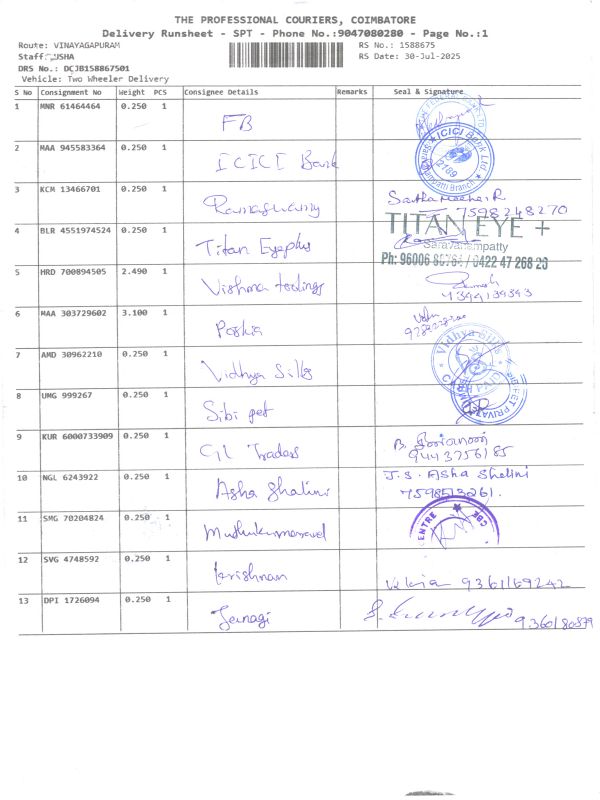 THE PROFESSIONAL COURIERS, COIMBATORE
Delivery Runsheet - SPT - Phone No.:9047080280 - Page No.:1
Route: VINAYAGAPURAM
RS No.: 1588675
Staff: USHA
RS Date: 30-Jul-2025
DRS No.: DCJB158867501
Vehicle: Two Wheeler Delivery
S No Consignment No Weight PCS Consignee Details Remarks Seal & Signature
1 MNR 61464464 0.250 1 FB
2 MAA 945583364 0.250 1 ICICI Bank ICICI Bank Ltd
3 KCM 13466701 0.250 1 Ramaswamy
7598248270
4 BLR 4551974524 0.250 1 Titan Eyeplus TITAN EYE +
Saravanampatty
0422 47 268 26
5 HRD 700894505 2.490 1 Vishma toolings
6 MAA 303729602 3.100 1
7 AMD 30962210 0.250 1 Vidhya Sills Vidhya Sills
8 UMG 999267 0.250 1 Sibi pet
9 KUR 6000733909 0.250 1 Traders
9443756185
10 NGL 6243922 0.250 1 Asha Shalini J.S. Asha Shelini
11 SMG 70204824 0.250 1 Muthukumaravel
12 SVG 4748592 0.250 1 krishnan 9361169242
13 DPI 1726094 0.250 1